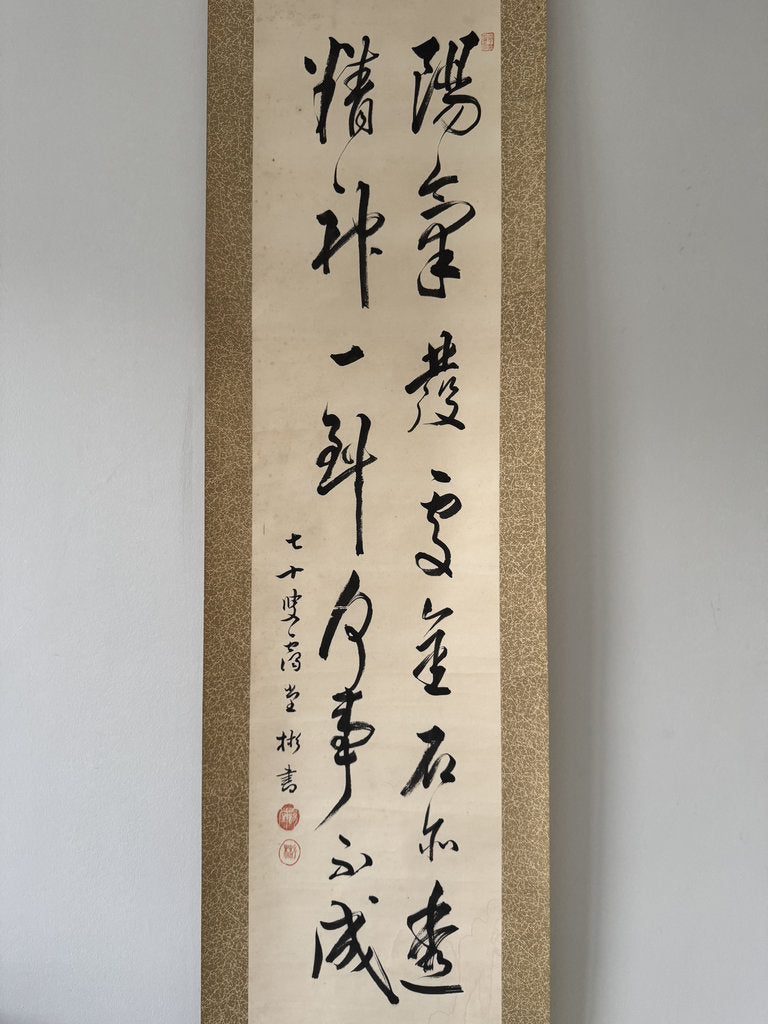 陽氣發處金石亦透
精神一到何事不成
七十叟堂彬書